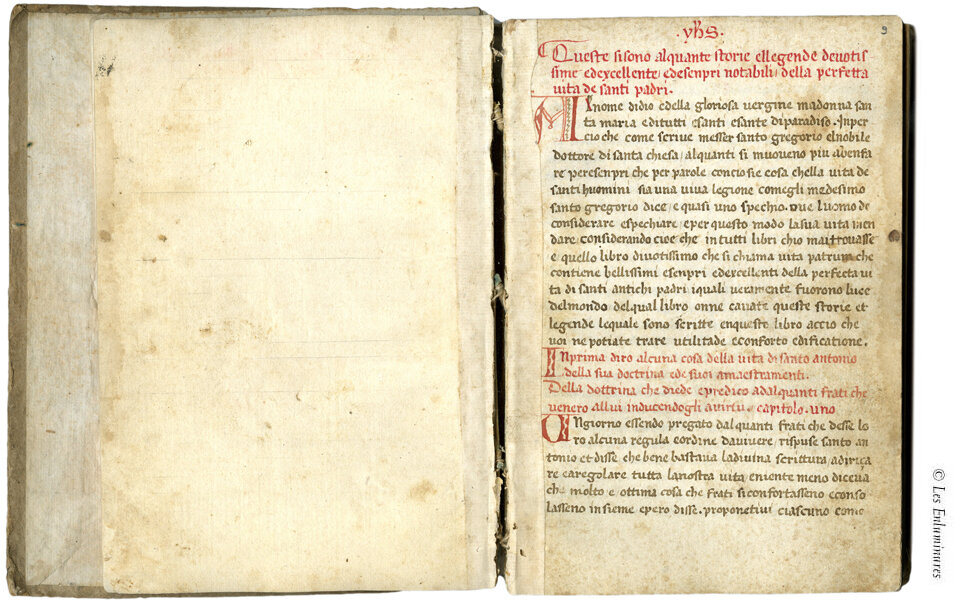 9
.yhS.
Queste sisono alquante storie ellegende deuotis
sime edexcellente/ edesenpri notabili/ della perfetta
uita de santi padri.
Al nome didio edella gloriosa uergine madonna san
ta maria editutti esanti esante diparadiso. Inper
cio che come scriue messer santo gregorio elnobile
dottore di santa chiesa/ alquanti si muoueno piu abenfa
re peresenpri che per parole concio sie cosa chella uita de
santi huomini sia una uiua legione comegli medesimo
santo gregorio dice/ e quasi uno spechio. oue luomo de
considerare espechiare/ eper questo modo lasua uita men
dare. considerando cioe che in tutti libri chio mai trouasse
e quello libro diuotissimo che si chiama uita patrum che
contiene bellissimi esenpri edexcellenti della perfecta ui
ta di santi antichi padri/ iquali ueramente fuorono luce
delmondo/ delqual libro onne cauate queste storie et
legende lequale sono scritte enquesto libro accio che
uoi ne potiate trare utilitade econforto edificatione.
Inprima diro alcuna cosa della uita di santo antonio
della sua doctrina ede suoi amaestramenti.
Della dottrina che diede epredico adalquanti frati che
uenero allui inducendogli auirtu. capitolo. uno
Ongiorno essendo pregato dalquanti frati che desse lo
ro alcuna regula eordine dauiuere, rispuse santo an
tonio et disse che bene bastaua ladiuina scrittura/ adiriça
re earegolare tutta lanostra uita eniente meno diceua
che molto e ottima cosa che frati siconfortasseno econso
lasseno insieme epero disse. proponetiui ciascuno come
© Les Enluminures